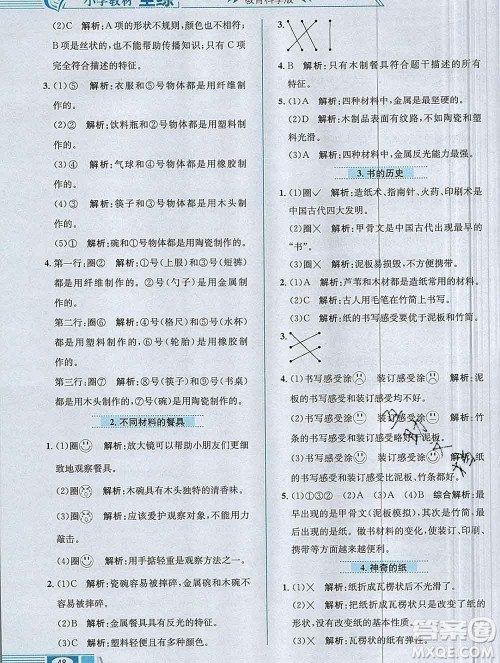 小学教材全练
教育科学版
(2)C 解析:A 项的形状不规则,没有颜色;
B 项是丝状的,也没有颜色,因此只有 C 项
完全符合描述的特征。
3. (1)④ 解析:衣服和⑤号物体都是用纤维制
作的。
(2)② 解析:饮料瓶和②号物体都是用塑料
制作的。
(3)④ 解析:气球和④号物体都是用橡胶制
作的。
(4)③ 解析:筷子和③号物体都是用木头制
作的。
(5)① 解析:碗和①号物体都是用陶瓷制
作的。
4. 第一行:圈② 解析:①号(上服)和③号(短裤)
都是用纤维制作的,②号(勺子)是用金属制
作的。
第二行:圈⑥ 解析:④号(格尺)和⑤号(水杯)
都是用塑料制作的,⑥号(轮胎)是用橡胶制
作的。
第三行:圈⑦ 解析:⑧号(筷子)和⑨号(书桌)
都是用木头制作的,⑦号(碗)是用陶瓷制
作的。
2. 不同材料的餐具
1. (1)圈 解析:放大镜可以帮助小朋友们更细
致地观察餐具。
(2)圈 解析:木碗具有木头独特的清香味。
(3)圈 解析:应该爱护观察对象,不能用力
敲击。
(4)圈 解析:用手掂轻重是观察的方法之一。
2. (1)× 解析:瓷碗容易被摔碎,木碗不容易
被摔碎。
(2)× 解析:金属餐具有反光的特征。
(3)× 解析:塑料碗不容易被摔碎。
48
3.
4. B 解析:只有木制餐具符合题干描述的材料
特征。
5. (1)A 解析:四种材料中,金属是最坚硬的。
(2)B 解析:木制品表面有纹路,不如陶瓷和塑
料光滑。
(3)A 解析:四种材料中,金属反光能力最强。
3. 书的历史
1. (1)圈✓ 解析:造纸术、指南针、火药、印刷术是
中国古代四大发明。
(2)圈✓ 解析:甲骨文是中国古代出现最早的
“书”。
(3)圈× 解析:泥板易损毁,不能长期保存。
2. (1)× 解析:芦苇和木材也可以用来造纸。
(2)× 解析:古人用毛笔在竹简上书写。
3.
4. (1)书写感受涂 装订感受涂 解析:
泥板的书写感受和装订感受均不好。
(2)书写感受涂 装订感受涂 解析:竹
条的书写感受和装订感受略好于泥板。
(3)书写感受涂 装订感受涂 解析:
纸的书写感受和装订感受均比泥板、竹条都好。
5. (1)①③② (2)B (3)A (4)B 综合解析:最
早出现的是甲骨文(泥板模拟),其次是竹简(竹条
模拟),最后出现的是纸。装订、印刷、造纸等技术
的进步,为书带来了变化,使书写更方便、装订更
简单、阅读更舒适。
4. 神奇的纸
1. (1)× 解析:纸折成瓦楞状后不光滑了。
(2)× 解析:把纸折成瓦楞状只改变了纸的形
状,没有改变纸的颜色。
(3)× 解析:瓦楞状的纸有弹性。
作业帮
MXQE.COM